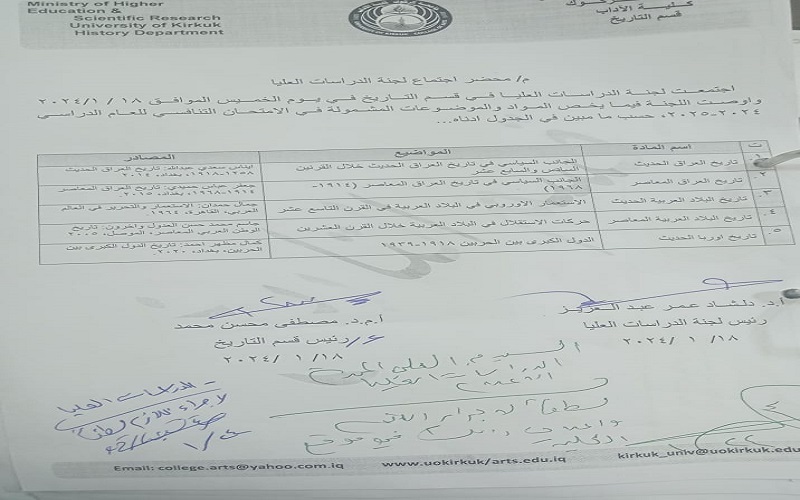 Ministry of Higher
Education &
Scientific Research
University of Kirkuk
History Department
كلية الآداب
قسم التاريخ
م/ محضر اجتماع لجنة الدراسات العليا
اجتمعت لجنة الدراسات العليا في قسم التاريخ في يوم الخميس الموافق ١٨/ ١/ ٢٠٢٤
واوصت اللجنة فيما يخص المواد والموضوعات المشمولة في الامتحان التنافسي للعام الدراسي
٢٠٢٤-٢٠٢٥، حسب ما مبين في الجدول ادناه...
ت اسم المادة المواضيع المصادر
١. تاريخ العراق الحديث الجانب السياسي في تاريخ العراق الحديث خلال القرنين السادس والسابع عشر ايناس سعدي عبدالله: تاريخ العراق الحديث ١٢٥٨-١٩١٨، بغداد، ٢٠١٤
٢. تاريخ العراق المعاصر الجانب السياسي في تاريخ العراق المعاصر (١٩١٤-١٩٦٨) جعفر عباس حميدي: تاريخ العراق المعاصر ١٩١٤-١٩٦٨، بغداد، ٢٠١٥
٣. تاريخ البلاد العربية الحديث الاستعمار الاوروبي في البلاد العربية في القرن التاسع عشر جمال حمدان: الاستعمار والتحرير في العالم العربي، القاهرة، ١٩٦٤
٤. تاريخ البلاد العربية المعاصر حركات الاستقلال في البلاد العربية خلال القرن العشرين جاسم محمد حسن العدول واخرون: تاريخ الوطن العربي المعاصر، الموصل، ٢٠٠٥
٥. تاريخ اوربا الحديث الدول الكبرى بين الحربين ١٩١٨-١٩٣٩ كمال مظهر احمد: تاريخ الدول الكبرى بين الحربين، بغداد، ٢٠٢٠
أ.د. دلشاد عمر عبد العزيز
رئيس لجنة الدراسات العليا
١٨/ ١/ ٢٠٢٤
أ.م.د. مصطفى محسن محمد
ع/ رئيس قسم التاريخ
١٨/ ١/ ٢٠٢٤
الدراسات العليا
Email: college.arts@yahoo.com.iq www.uokirkuk/arts.edu.iq kirkuk_univ@uokirkuk.edu